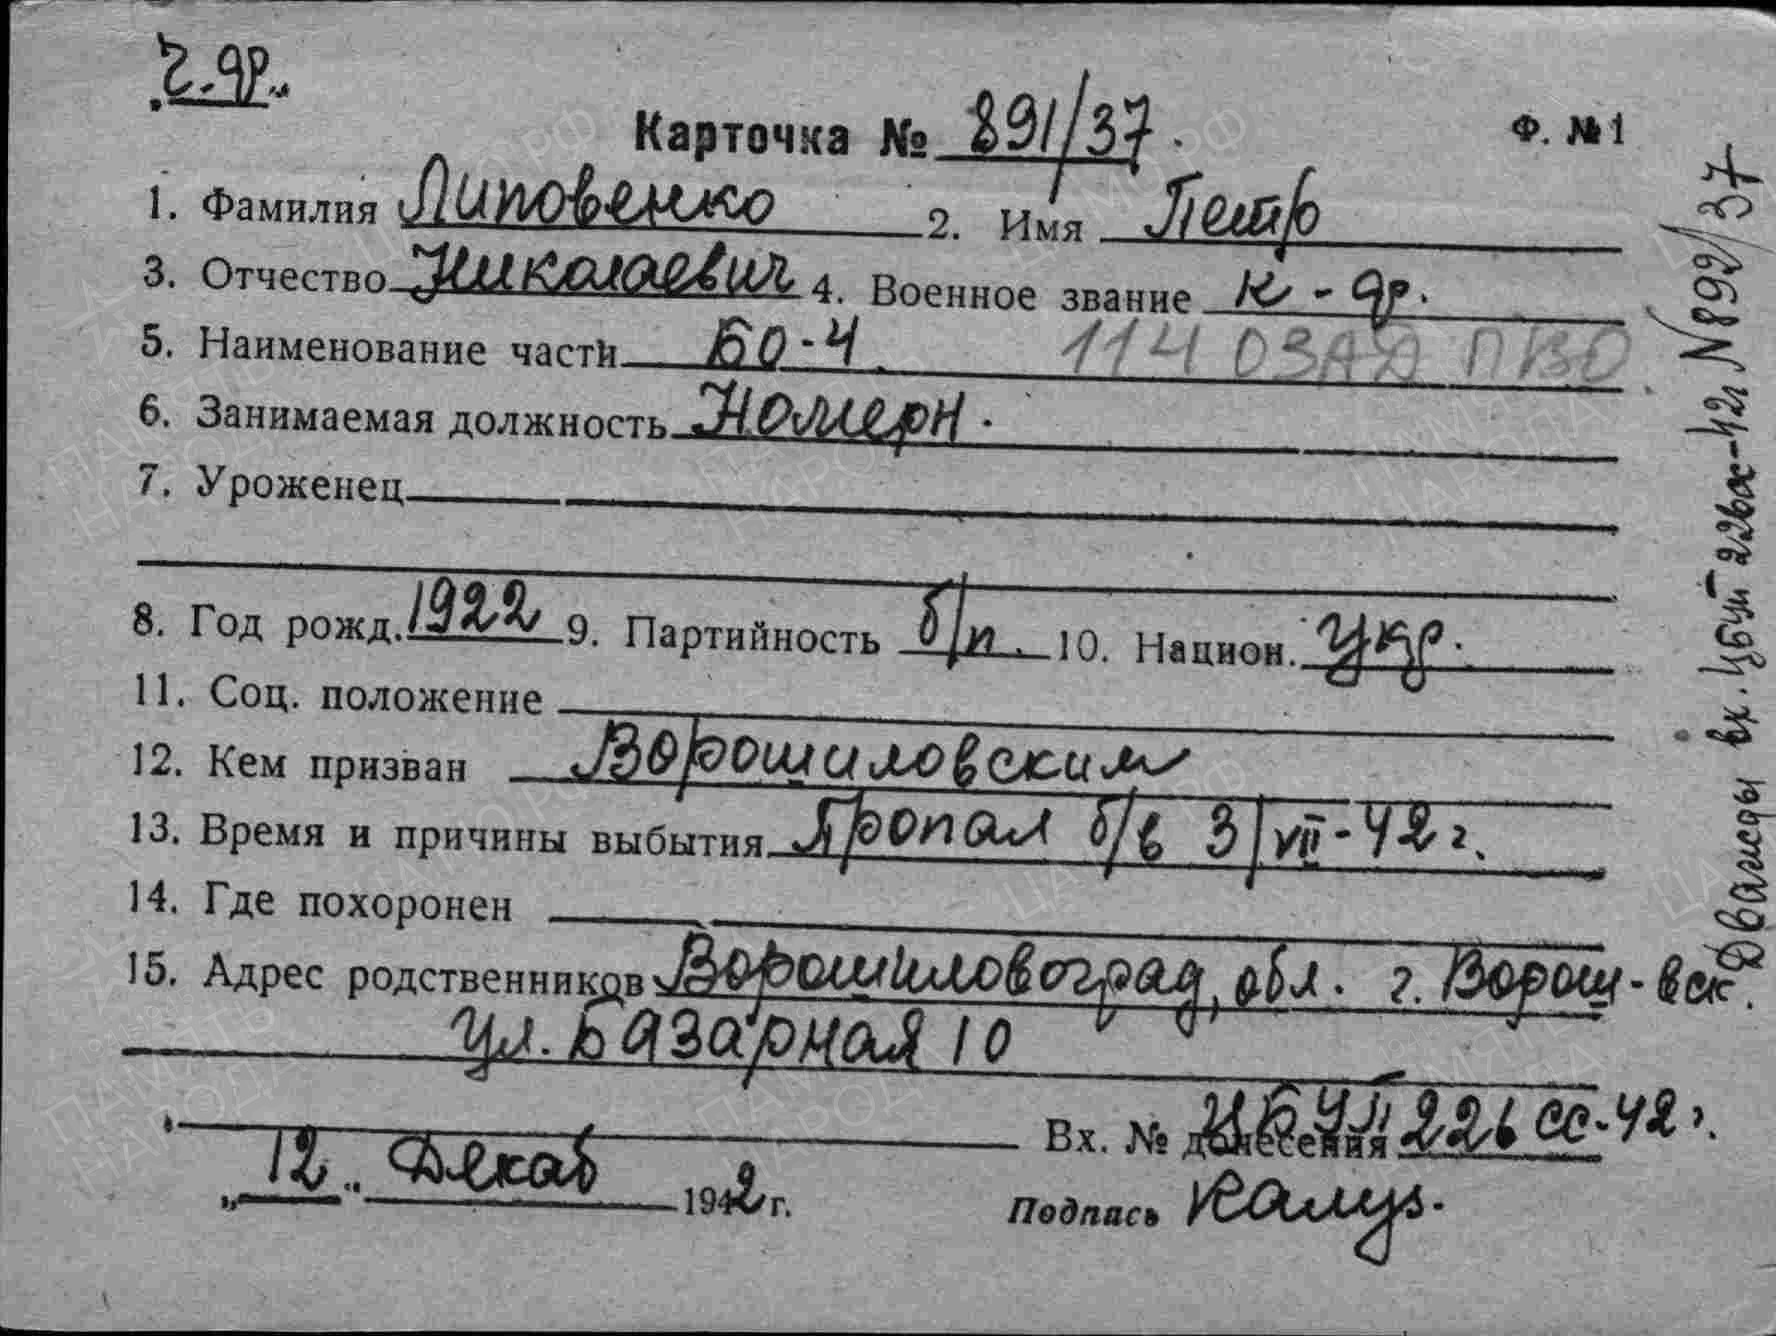 Ч.ф.
Карточка № 891/37. Ф. №1
1. Фамилия Липовенко 2. Имя Петр
3. Отчество Николаевич 4. Военное звание к-др.
5. Наименование части БО-4. 114 ОЗАД ПВО
6. Занимаемая должность Номерн.
7. Уроженец
8. Год рожд. 1922 9. Партийность б/п. 10. Национ. Укр.
11. Соц. положение
12. Кем призван Ворошиловским
13. Время и причины выбытия Пропал б/в 3/VII-42г.
14. Где похоронен
15. Адрес родственников Ворошиловоград, обл. г. Ворош-вск.
ул. Базарная 10
Вх. № донесения ЦБУП 226сс-42г.
„12" Декаб 1942 г. Подпись
Дважды вх. ЦБУП 226сс-42г N892/37
ПАМЯТЬ НАРОДА
ЦАМО.РФ